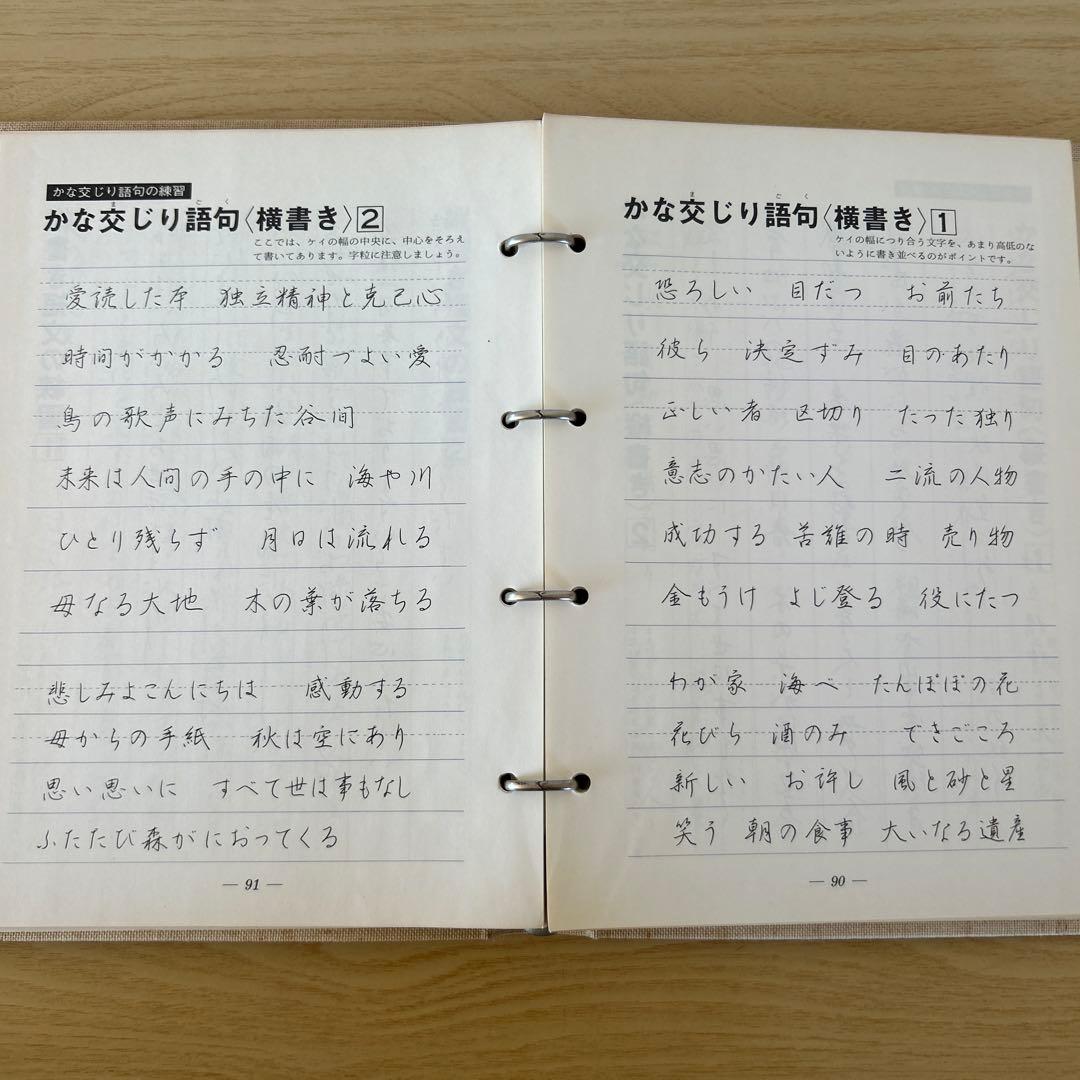 かな交じり語句〈横書き〉1
ケイの幅につり合う文字を、あまり高低のな
いように書き並べるのがポイントです。
恐ろしい 目だつ お前たち
彼ら 決定ずみ 目のあたり
正しい者 区切り たった独り
意志のかたい人 二流の人物
成功する 苦難の時 売り物
金もうけ よじ登る 役にたつ
わが家 海べ たんぽぽの花
花びら 酒のみ できごころ
新しい お許し 風と砂と星
笑う 朝の食事 大いなる遺産
— 90 —
かな交じり語句の練習
かな交じり語句〈横書き〉2
ここでは、ケイの幅の中央に、中心をそろえ
て書いてあります。字粒に注意しましょう。
愛読した本 独立精神と克己心
時間がかかる 忍耐づよい愛
鳥の歌声にみちた谷間
未来は人間の手の中に 海や川
ひとり残らず 月日は流れる
母なる大地 木の葉が落ちる
悲しみよこんにちは 感動する
母からの手紙 秋は空にあり
思い思いに すべて世は事もなし
ふたたび森がにおってくる
— 91 —